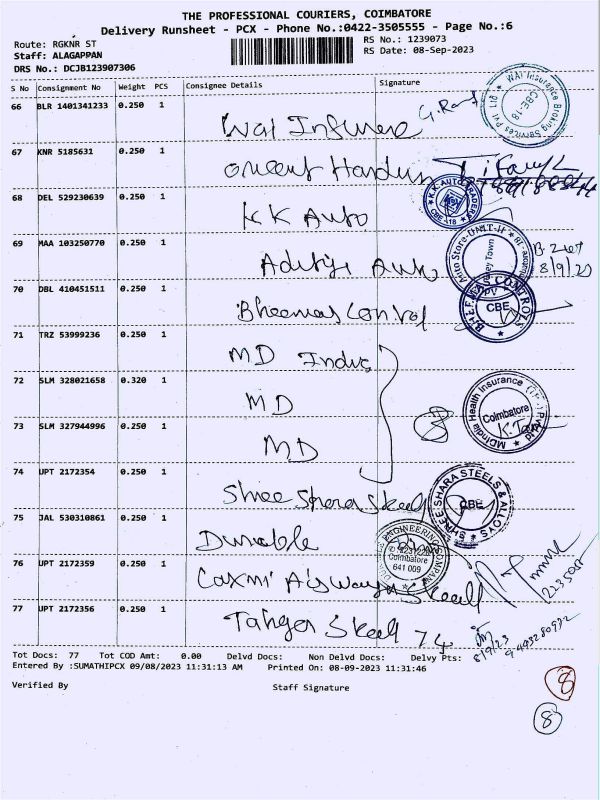 THE PROFESSIONAL COURIERS, COIMBATORE
Delivery Runsheet - PCX - Phone No.:0422-3505555 - Page No.:6
Route: RGKNR ST
RS No.: 1239073
Staff: ALAGAPPAN
RS Date: 08-Sep-2023
DRS No.: DCJB123907306
S No Consignment No Weight PCS Consignee Details Signature
66 BLR 1401341233 0.250 1
WAI Insurance Broking Services Pvt Ltd
CBE-18
67 KNR 5185631 0.250 1
68 DEL 529230639 0.250 1 KK Auto
K.K. AUTO TRADERS
CBE - 18
69 MAA 103250770 0.250 1
Auto Store-UNIT-II
8/9/23
70 DBL 410451511 0.250 1 Bheemas Control
BHEEMAS CONTROLS
CBE
71 TRZ 53999236 0.250 1 MD India
72 SLM 328021658 0.320 1 MD
MDIndia Health Insurance
Coimbatore
73 SLM 327944996 0.250 1 MD
8
74 UPT 2172354 0.250 1 Shree Shara Steel
SHREE SHARA STEELS & ALLOYS
CBE
75 JAL 530310861 0.250 1 Durable
ENGINEERING COMPANY
Coimbatore
641 009
76 UPT 2172359 0.250 1 Laxmi
77 UPT 2172356 0.250 1 Steel 74
8/9/23
Tot Docs: 77 Tot COD Amt: 0.00 Delvd Docs: Non Delvd Docs: Delvy Pts:
Entered By :SUMATHIPCX 09/08/2023 11:31:13 AM Printed On: 08-09-2023 11:31:46
Verified By Staff Signature
8
8